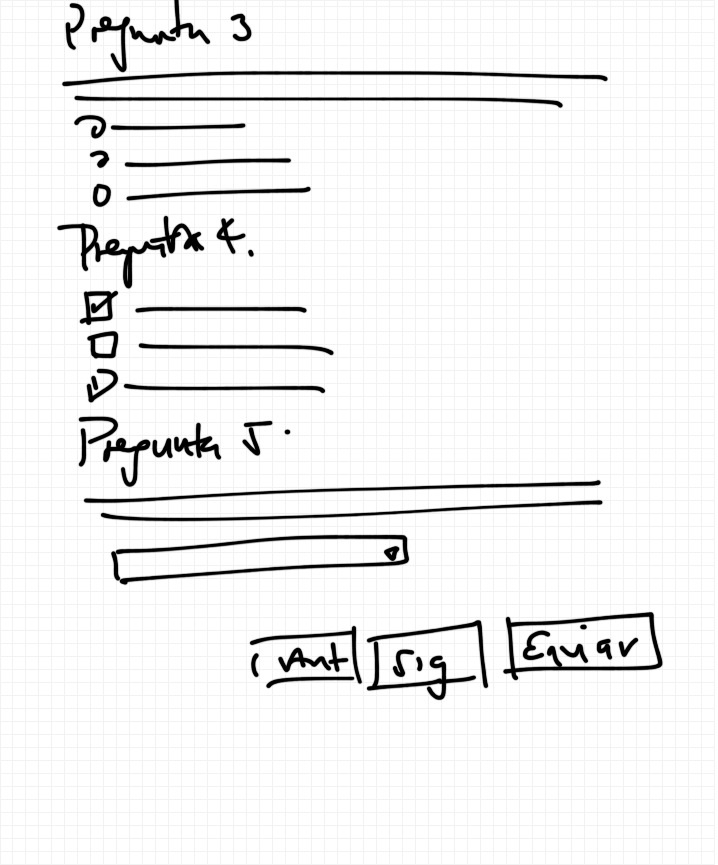 Pregunta 3
Pregunta 4.
Pregunta 5.
Ant Sig Enviar